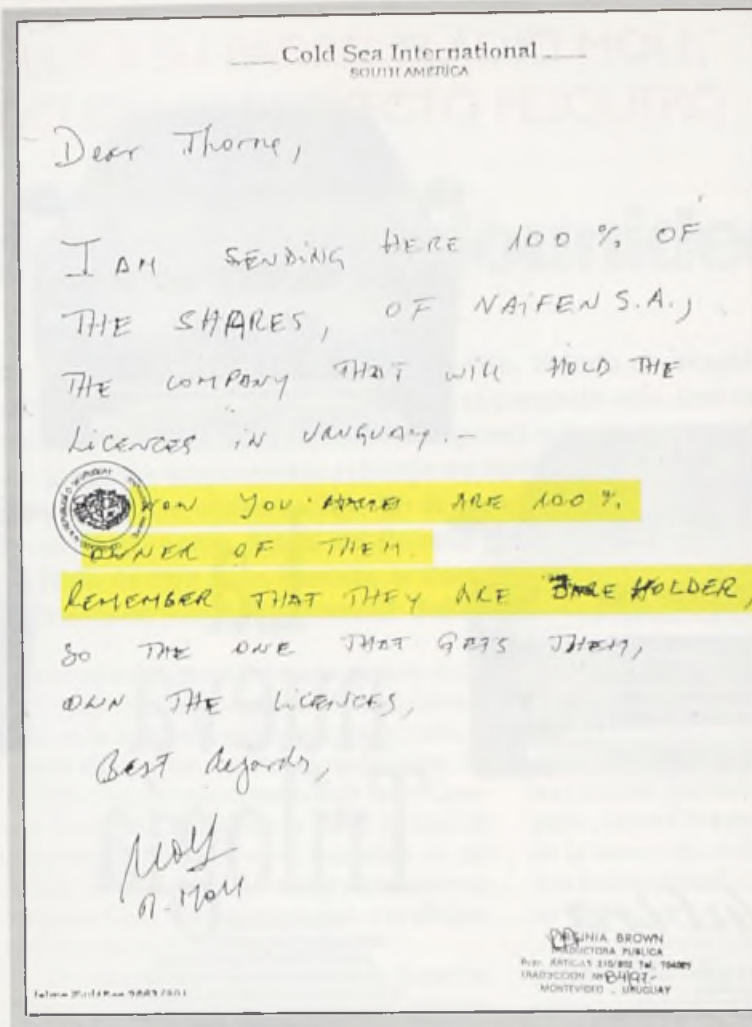 Cold Sea International
SOUTH AMERICA
Dear Thorne,
I AM SENDING HERE 100 % OF
THE SHARES, OF NAIFEN S.A.,
THE COMPANY THAT WILL HOLD THE
LICENCES IN URUGUAY.-
NOW YOU ARE 100 %
OWNER OF THEM.
REMEMBER THAT THEY ARE HOLDER,
SO THE ONE THAT GETS THEM,
OWN THE LICENCES,
Best Regards,
VIRGINIA BROWN
TRADUCTORA PUBLICA
MONTEVIDEO - URUGUAY